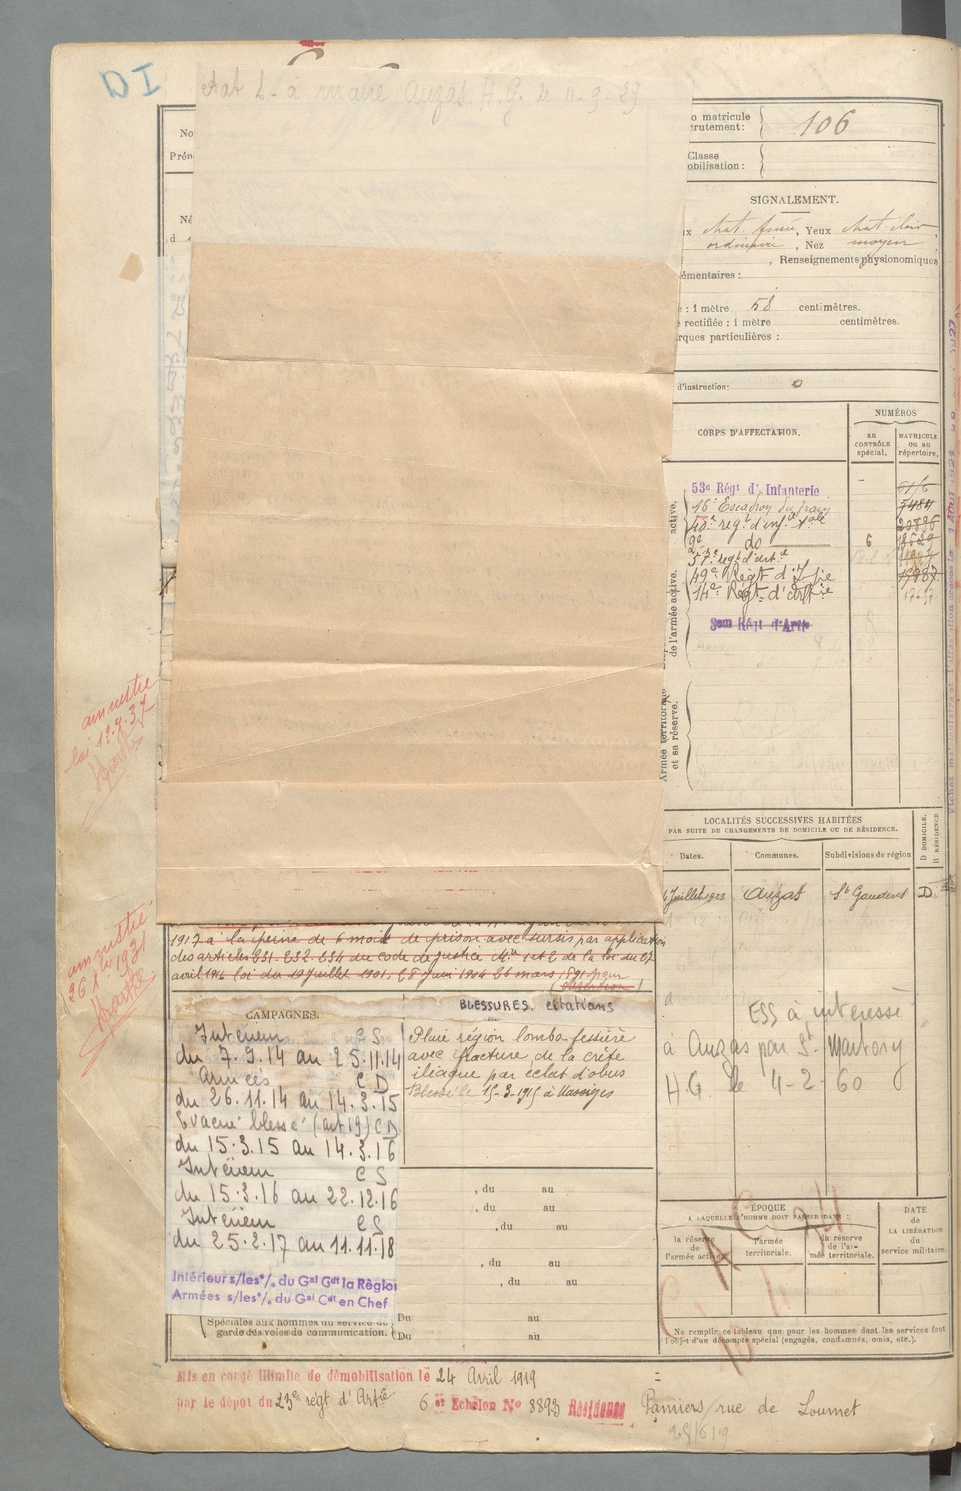 DI
Etat L. à maire Auzas. H. G. le 11-9-29
No
Prén
Né
d
o matricule
crutement:
106
Classe
obilisation:
SIGNALEMENT.
x chat. foncé, Yeux chat. clair
ordinaire, Nez moyen
, Renseignements physionomiques
lémentaires :
e : 1 mètre 58 centimètres.
e rectifiée : 1 mètre centimètres.
rques particulières :
d'instruction: 0
CORPS D'AFFECTATION.
NUMÉROS
au
CONTRÔLE
spécial.
MATRICULE
OU AU
répertoire.
active.
53e Régt d'Infanterie
16e Escadron du train 5484
40e regt d'inf. 20796
9e do 6
57e regt d'art.
49e Régt d'Iie
14e Régt d'artie
3em Régt d'Artie
de l'armée active.
Armée territoriale
et sa réserve.
amnistie
loi 12.7.37
LOCALITÉS SUCCESSIVES HABITÉES
PAR SUITE DE CHANGEMENTS DE DOMICILE OU DE RÉSIDENCE.
Dates.
Communes.
Subdivisions de région
D DOMICILE.
R RÉSIDENCE
Juillet 1923 Auzas St Gaudens D
amnistie
1931
1917 à la peine de 6 mois de prison avec sursis par application
des articles 231. 232. 234 du code de justice Mre et de la loi du 27
avril 1916 loi du 19 juillet 1901, 28 juin 1904 26 mars 1891 pour
CAMPAGNES.
Intérieur C S
du 7.9.14 au 25.11.14
Armées C D
du 26.11.14 au 14.3.15
Evacué blessé (art 19) C D
du 15.3.15 au 14.3.16
Intérieur C S
du 15.3.16 au 22.12.16
Intérieur C S
du 25.2.17 au 11.11.18
Intérieur s/les °/. du Gal Gdt la Régio
Armées s/les °/. du Gal Cdt en Chef
BLESSURES. citations
Plaie région lombo-fessière
avec fracture de la crête
iliaque par éclat d'obus
Blessé le 15-3-1915 à Massiges
, du au
, du au
, du au
, du au
, du au
Spéciales aux hommes du service de
garde des voies de communication.
Du au
Du au
ESS à intéressé
à Auzas par St Martory
H.G. le 4-2-60
ÉPOQUE
A LAQUELLE L'HOMME DOIT PASSER DANS :
la réserve
de l'armée active
l'armée
territoriale.
la réserve
de l'ar-
mée territoriale.
DATE
de
LA LIBÉRATION
du
service militaire.
Ne remplir ce tableau que pour les hommes dont les services font
l'objet d'un décompte spécial (engagés, condamnés, omis, etc.).
Mis en congé illimité de démobilisation le 24 Avril 1919
par le dépôt du 23e régt d'Artie 6 er Echelon No 8893 Résidence Pamiers rue de Loumet